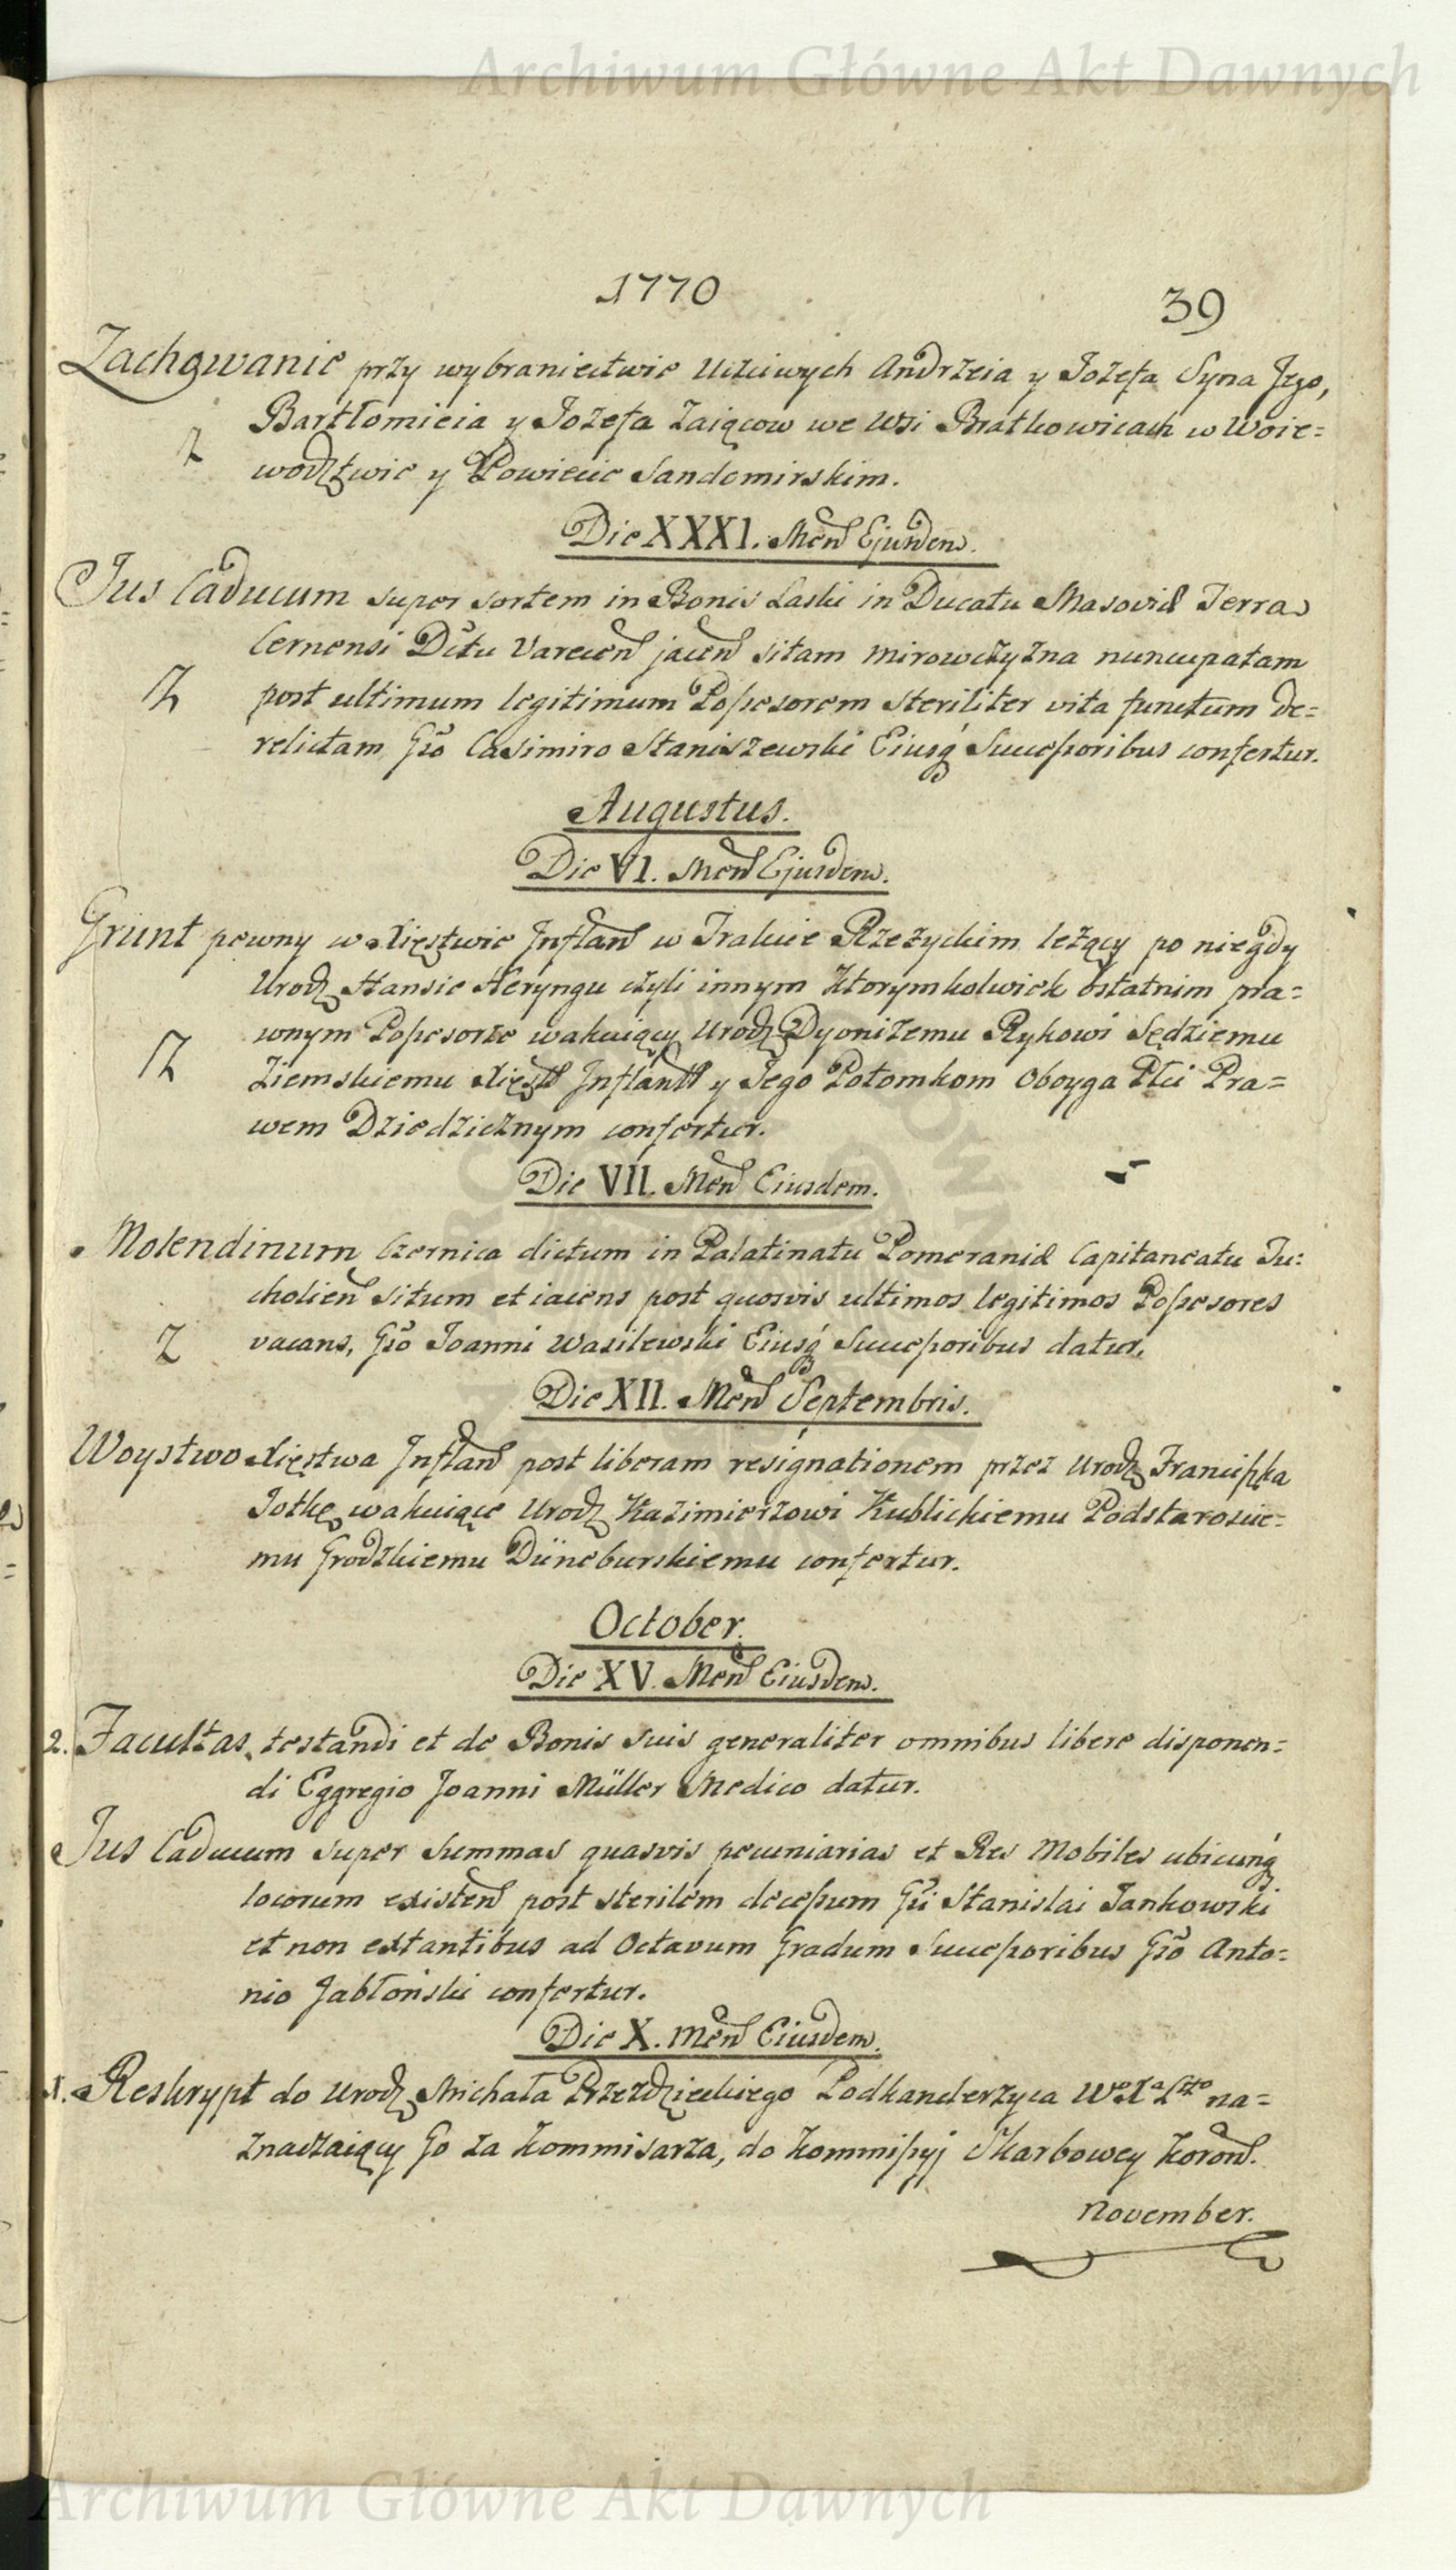 Archiwum Główne Akt Dawnych
1770
39
Zachowanie przy wybraniectwie Uczciwych Andrzeia y Jozefa Syna Jego,
Bartłomieia y Jozefa Zaiącow we Wsi Bratkowicach w Woie=
Z
wodztwie y Powiecie Sandomirskim.
Die XXXI. Men Ejusdem.
Jus Caducum super sortem in Bonis Laski in Ducatu Masoviæ Terra
Cernensi Dctu Varecen jacen sitam Mirowczyzna nuncupatam
Z
post ultimum legitimum Possesorem steriliter vita functum de=
relictam Gso Casimiro Staniszewski Eiusq Successoribus confertur.
Augustus.
Die VI. Men Ejusdem.
Grunt pewny w Xięstwie Inflan w Trakcie Rzeżyckim leżący po niegdy
Urodz Hansie Heryngu czyli innym Ktorymkolwiek ostatnim pra=
wnym Possesorze wakuiący Urodz Dyonizemu Rykowi Sędziemu
Z
Ziemskiemu Xięstt Inflantt y Jego Potomkom Oboyga Płci Pra=
wem Dziedzicznym confertur.
Die VII. Men Eiusdem.
Molendinum Czernica dictum in Palatinatu Pomeraniæ Capitaneatu Tu:
cholien situm et iacens post quosvis ultimos legitimos Possesores
Z
vacans, Gso Joanni Wasilewski Eiusq Successoribus datur.
Die XII. Men Septembris.
Woystwo Xięstwa Inflan post liberam resignationem przez Urodz Franciszka
Jotkę wakuiące Urodz Kazimierzowi Kublickiemu Podstarosćie=
mu Grodzkiemu Düneburskiemu confertur.
October.
Die XV. Men Eiusdem.
2. Facultas testandi et de Bonis suis generaliter omnibus libere disponen=
di Eggregio Joanni Müller Medico datur.
Jus Caducum super Summas quasvis pecuniarias et Res Mobiles ubicunq
locorum existen post sterilem decessum Gsi Stanislai Jankowski
et non extantibus ad Octavum Gradum Successoribus Gso Anto=
nio Jabłoński confertur.
Die X. Men Eiusdem.
1. Reskrypt do Urodz Michała Przezdzieckiego Podkanclerzyca Wo Xa Ltto na=
znaczaiący Go za Kommisarza, do Kommissyj Skarbowey Koron.
November.
Archiwum Główne Akt Dawnych